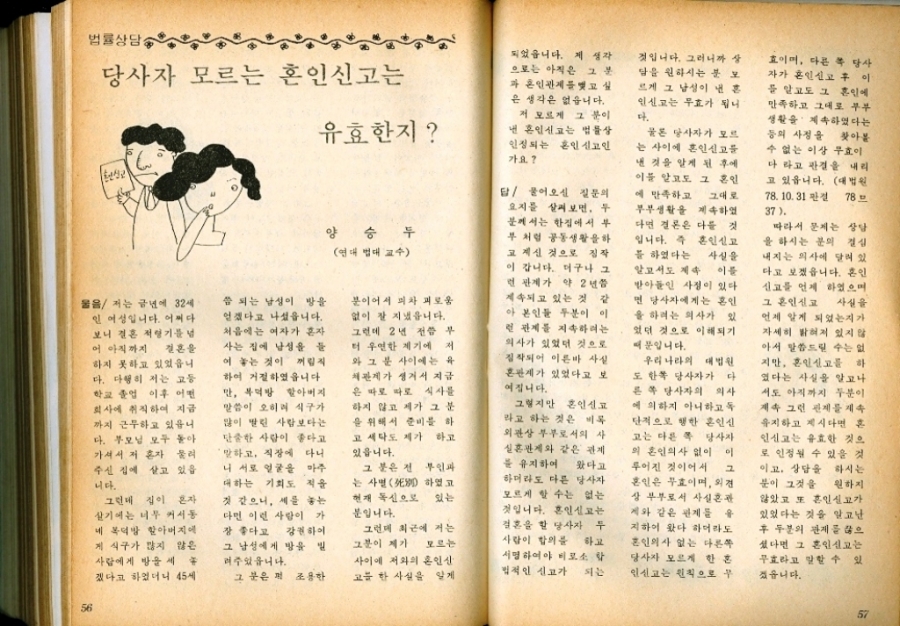 법률상담
당사자 모르는 혼인신고는
유효한지?
혼인신고
양 승 두
(연대 법대 교수)
물음/ 저는 금년에 32세
인 여성입니다. 어쩌다
보니 결혼 적령기를 넘
어 아직까지 결혼을
하지 못하고 있었읍니
다. 다행히 저는 고등
학교 졸업 이후 어떤
회사에 취직하여 지금
까지 근무하고 있읍니
다. 부모님 모두 돌아
가셔서 저 혼자 물려
주신 집에 살고 있읍
니다.
그런데 집이 혼자
살기에는 너무 커서 동
네 복덕방 할아버지에
게 식구가 많지 않은
사람에게 방을 세 놓
겠다고 하였더니 45세
쯤 되는 남성이 방을
얻겠다고 나섰읍니다.
처음에는 여자가 혼자
사는 집에 남성을 들
여 놓는 것이 꺼림직
하여 거절하였읍니다
만, 복덕방 할아버지
말씀이 오히려 식구가
많이 딸린 사람보다는
단출한 사람이 좋다고
말하고, 직장에 다니
니 서로 얼굴을 마주
대하는 기회도 적을
것 같으니, 세를 놓는
다면 이런 사람이 가
장 좋다고 강권하여
그 남성에게 방을 빌
려주었읍니다.
그 분은 퍽 조용한
분이어서 피차 괴로움
없이 잘 지냈읍니다.
그런데 2년 전쯤 부
터 우연한 계기에 저
와 그 분 사이에는 육
체관계가 생겨서 지금
은 따로 따로 식사를
하지 않고 제가 그 분
을 위해서 준비를 하
고 세탁도 제가 하고
있읍니다.
그 분은 전 부인과
는 사별(死別) 하였고
현재 독신으로 있는
분입니다.
그런데 최근에 저는
그분이 제가 모르는
사이에 저와의 혼인신
고를 한 사실을 알게
56
되었읍니다. 제 생각
으로는 아직은 그 분
과 혼인관계를 맺고 싶
은 생각은 없읍니다.
저 모르게 그 분이
낸 혼인신고는 법률상
인정되는 혼인신고인
가요?
답/ 물어오신 질문의
요지를 살펴보면, 두
분께서는 한집에서 부
부 처럼 공동생활을 하
고 계신 것으로 짐작
이 갑니다. 더구나 그
런 관계가 약 2년쯤
계속되고 있는 것 같
아 본인들 두분이 이
런 관계를 지속하려는
의사가 있었던 것으로
짐작되어 이른바 사실
혼관계가 있었다고 보
여집니다.
그렇지만 혼인신고
라고 하는 것은 비록
외관상 부부로서의 사
실혼관계와 같은 관계
를 유지하여 왔다고
하더라도 다른 당사자
모르게 할 수는 없는
것입니다. 혼인신고는
결혼을 할 당사자 두
사람이 합의를 하고
서명하여야 비로소 합
법적인 신고가 되는
것입니다. 그러니까 상
담을 원하시는 분 모
르게 그 남성이 낸 혼
인신고는 무효가 됩니
다.
물론 당사자가 모르
는 사이에 혼인신고를
낸 것을 알게 된 후에
이를 알고도 그 혼인
에 만족하고 그대로
부부생활을 계속하였
다면 결론은 다를 것
입니다. 즉 혼인신고
를 하였다는 사실을
알고서도 계속 이를
받아들인 사정이 있다
면 당사자에게는 혼인
을 하려는 의사가 있
었던 것으로 이해되기
때문입니다.
우리나라의 대법원
도 한쪽 당사자가 다
른 쪽 당사자의 의사
에 의하지 아니하고 독
단적으로 행한 혼인신
고는 다른 쪽 당사자
의 혼인의사 없이 이
루어진 것이어서 그
혼인은 무효이며, 외견
상 부부로서 사실혼관
계와 같은 관계를 유
지하여 왔다 하더라도
혼인의사 없는 다른쪽
당사자 모르게 한 혼
인신고는 원칙으로 무
효이며, 다른 쪽 당사
자가 혼인신고 후 이
를 알고도 그 혼인에
만족하고 그대로 부부
생활을 계속하였다는
등의 사정을 찾아볼
수 없는 이상 무효이
다 라고 판결을 내리
고 있읍니다. (대법원
78.10.31 판결 78므
37).
따라서 문제는 상담
을 하시는 분의 결심
내지는 의사에 달려 있
다고 보겠읍니다. 혼인
신고를 언제 하였으며
그 혼인신고 사실을
언제 알게 되었는지가
자세히 밝혀져 있지 않
아서 말씀드릴 수는 없
지만, 혼인신고를 하
였다는 사실을 알고나
서도 아직까지 두분이
계속 그런 관계를 계속
유지하고 계시다면 혼
인신고는 유효한 것으
로 인정될 수 있을 것
이고, 상담을 하시는
분이 그것을 원하지
않았고 또 혼인신고가
있었다는 것을 알고난
후 두분의 관계를 끊으
셨다면 그 혼인신고는
무효라고 말할 수 있
겠읍니다.
57